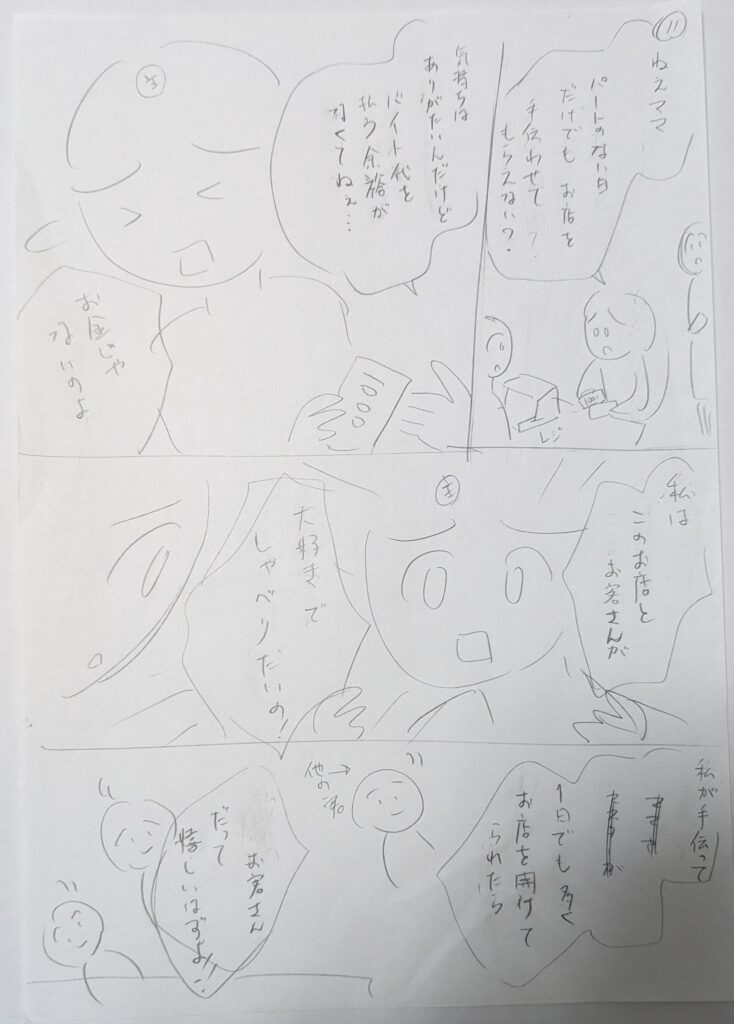 11
ねえママ
パートのない日
だけでも お店を
手伝わせて
もらえない？
1000
レジ
気持ちは
ありがたいんだけど
バイト代を
払う余裕が
なくてねぇ…
お金じゃ
ないのよ
私は
このお店と
お客さんが
大好きで
しゃべりたいの！
私が手伝って
1日でも多く
お店を開けて
られたら
他の客→
お客さん
だって
嬉しいはずよ!!